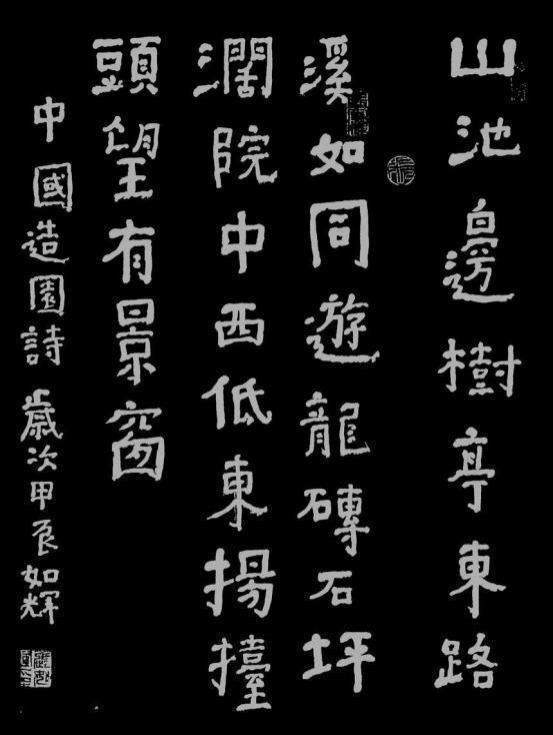 山池邊樹亭東路
溪如同遊龍磚石坪
濶院中西低東揚擡
頭望有景窗
中國造園詩 歲次甲辰如輝